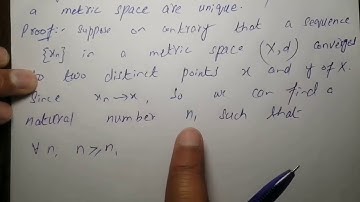 a metric space are unique.
Proof:- Suppose on contrary that a sequence
{xn} in a metric space (X,d) converges
to two distinct points x and y of X.
Since xn→x, So we can find a
natural number n₁ such that
∀ n, n≥n₁